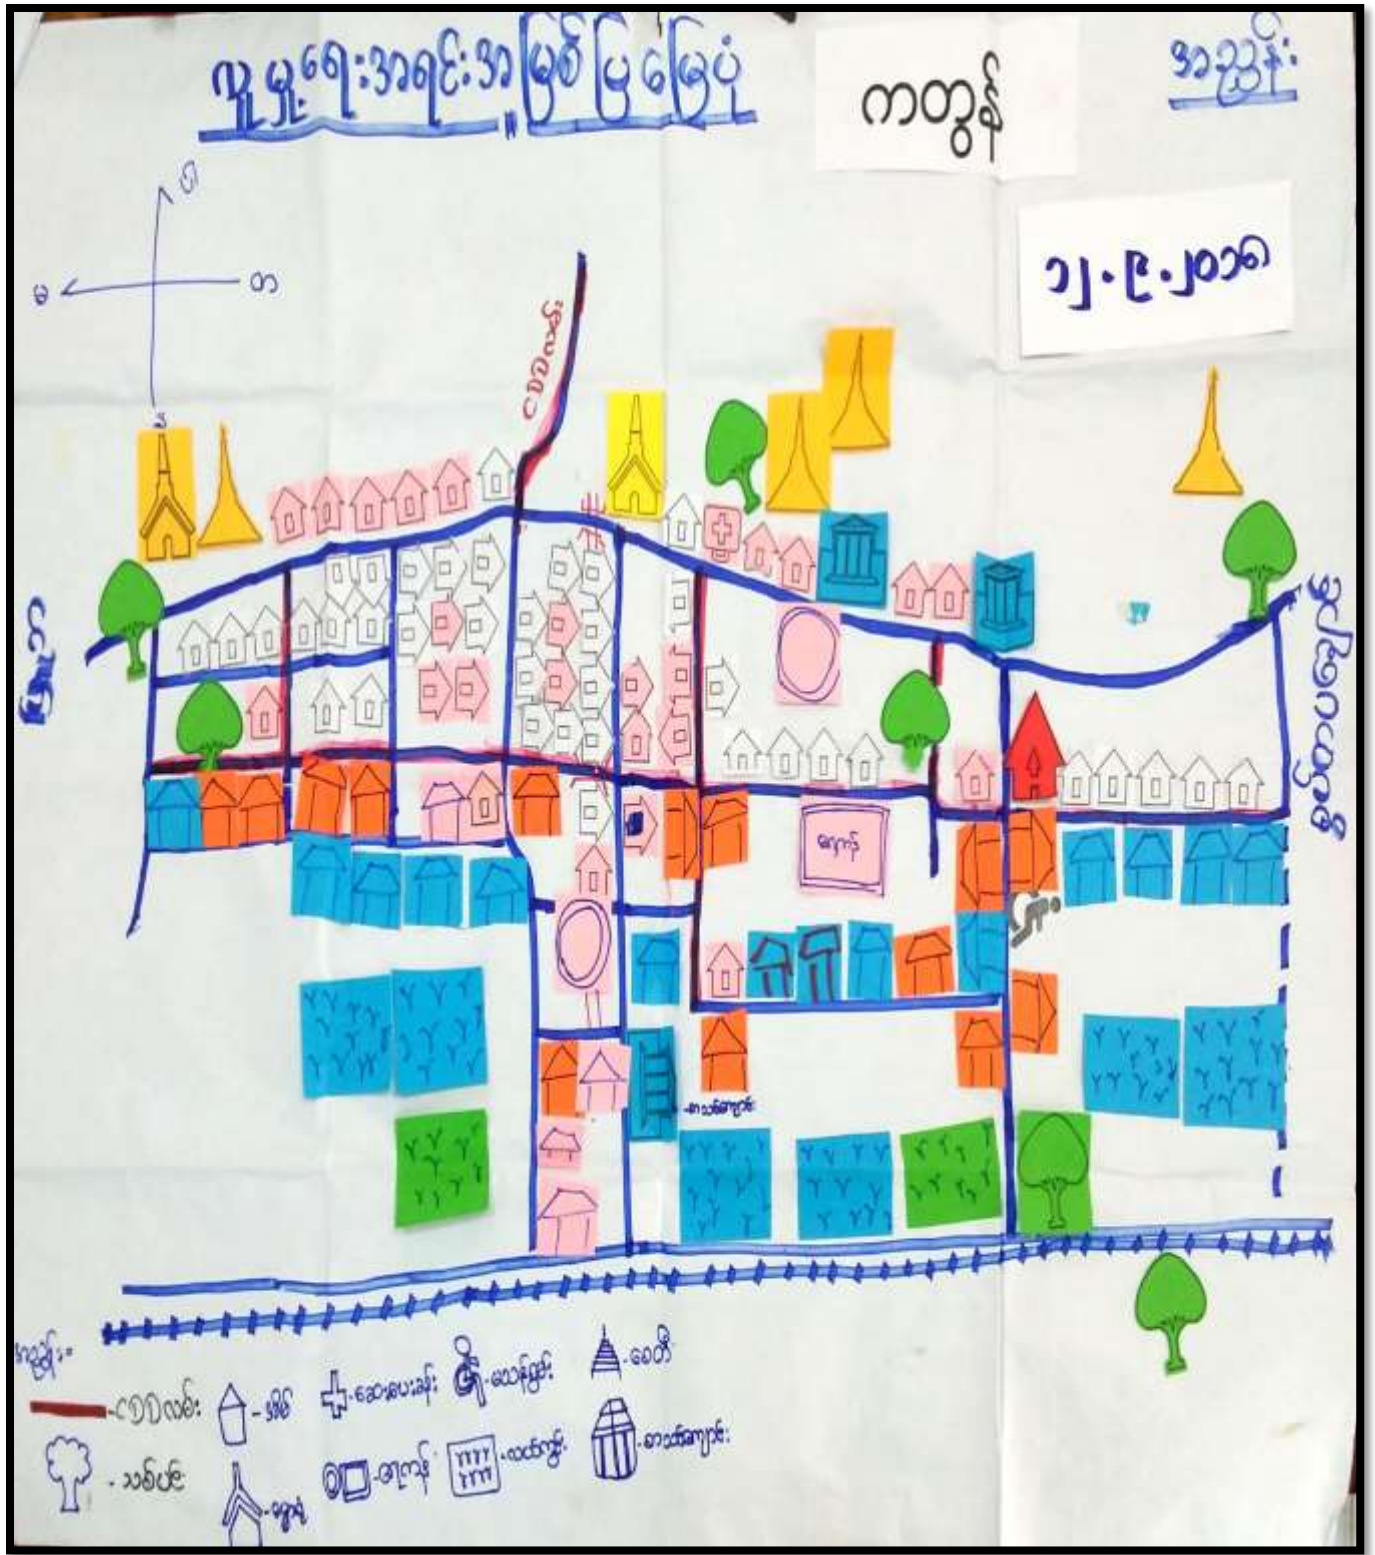 လူမှု့ရေးအရင်းအမြစ်ပြမြေပုံ
ကတွန်
အညွှန်း
၁၂.၉.၂၀၁၈
CDDလမ်း
ရေကန်
-စာသင်ကျောင်း
အညွှန်း=
-CDDလမ်း
-အိမ်
-ဆေးပေးခန်း
-စေတီ
-သစ်ပင်
-ရေကန်
-လယ်ကွင်း
-စာသင်ကျောင်း